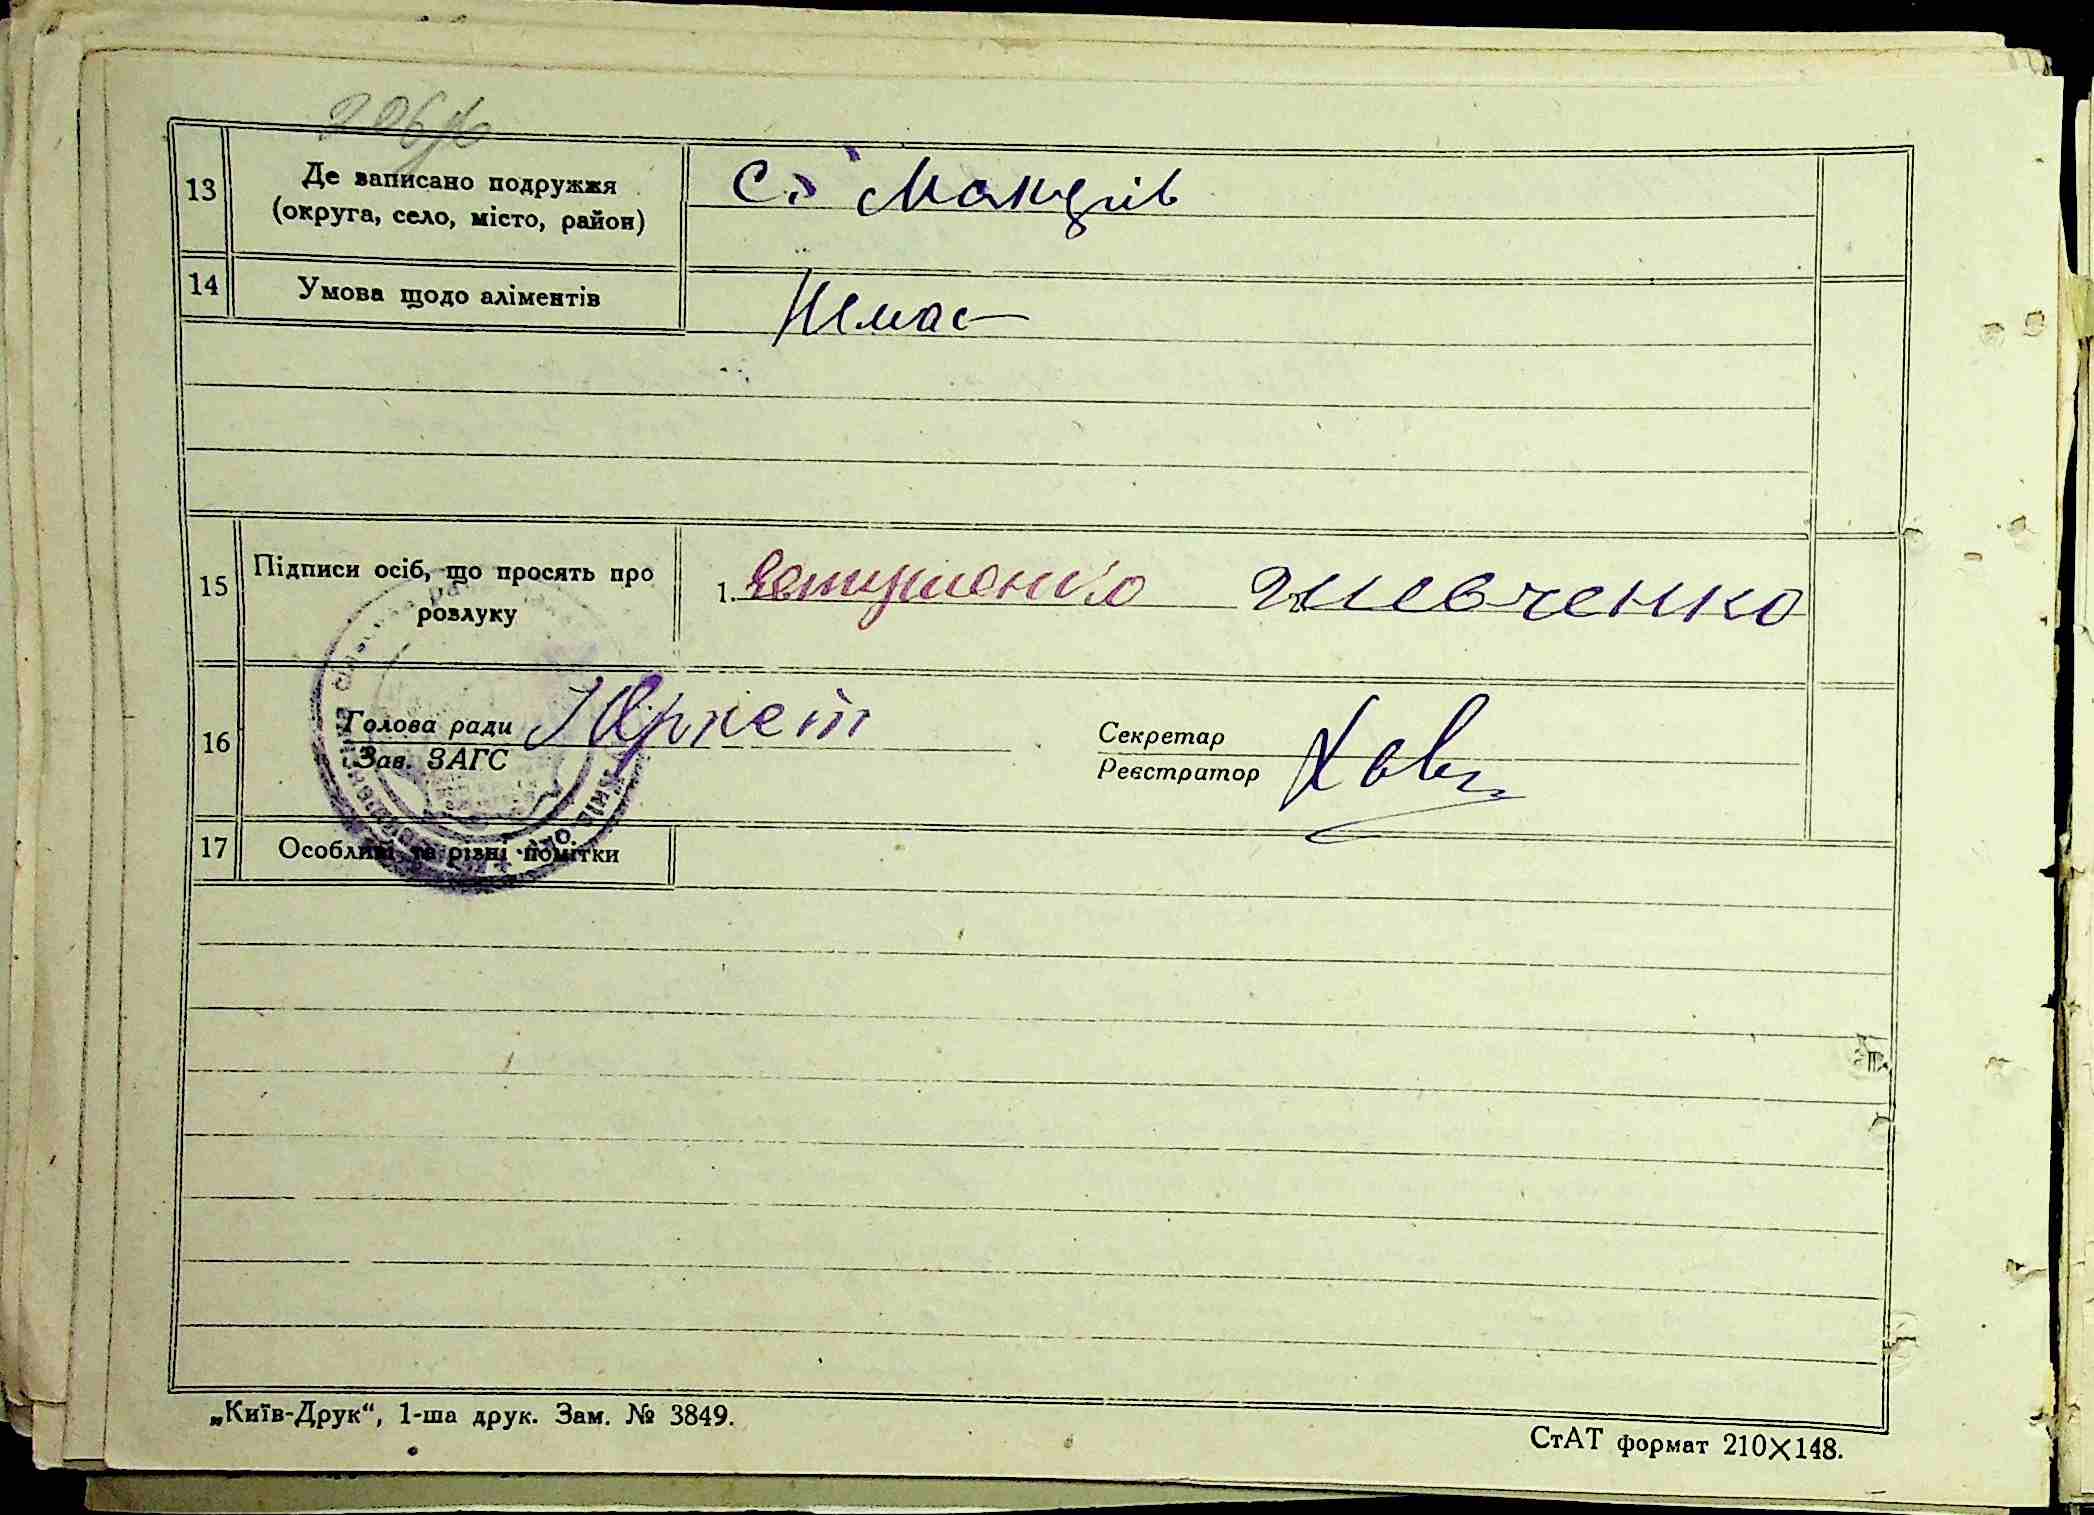 13
Де записано подружжя
(округа, село, місто, район)
с. Манзрів
14
Умова щодо аліментів
Немає
15
Підписи осіб, що просять про
розлуку
1.
Шевченко
16
Голова ради
Зав. ЗАГС
Секретар
Реєстратор
17
Особливі та різні помітки
„Київ-Друк“, 1-ша друк. Зам. № 3849.
СтАТ формат 210×148.